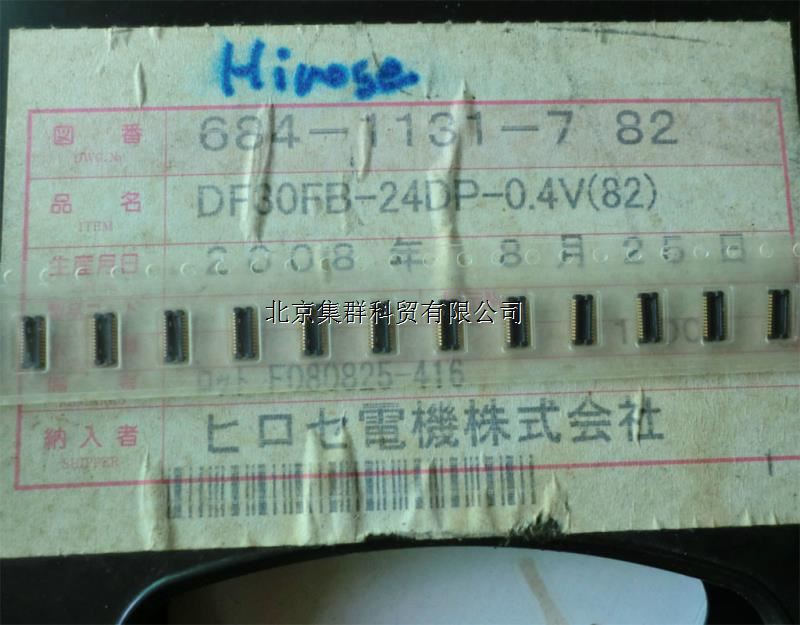 Hirose
図 番 684-1131-7 82
DWG.No
品 名 DF30FB-24DP-0.4V(82)
ITEM
生産月日 2008 年 8 月 25 日
北京集群科贸有限公司
ロット FD80825-416
納入者 ヒロセ電機株式会社
SHIPPER